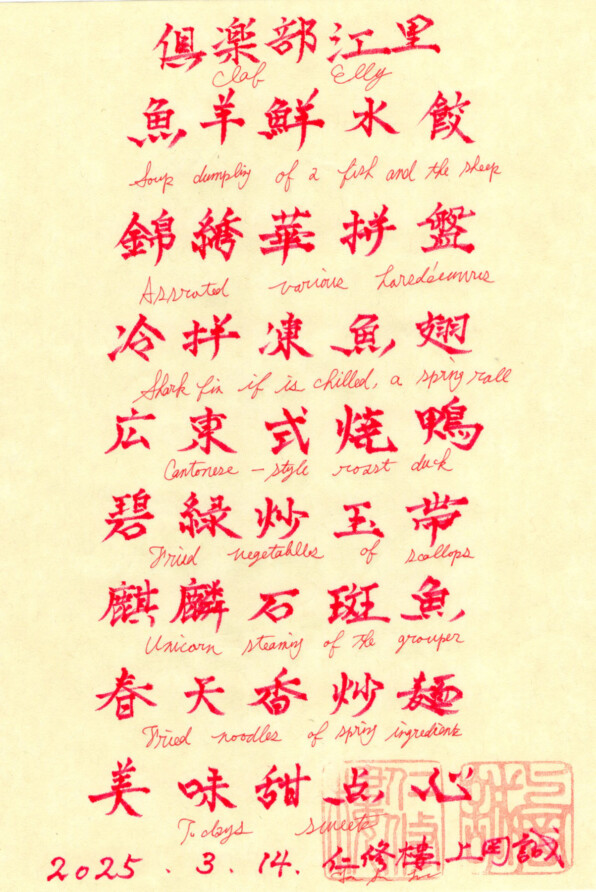 倶楽部江里
Claf Elly
魚羊鮮水餃
Soup dumpling of a fish and the sheep
錦綉華拼盤
Assrated various
冷拼凍魚翅
Shark fin if is chilled, a spring rall
広東式焼鴨
Cantonese - style roast duck
碧緑炒玉帯
Fried vegetablles of scallops
麒麟石斑魚
Unicorn steaming of the grouper
春天香炒麺
Fried noodles of spring ingredients
美味甜点心
Todays sweets
2025.3.14. 仁修樓 上岡誠